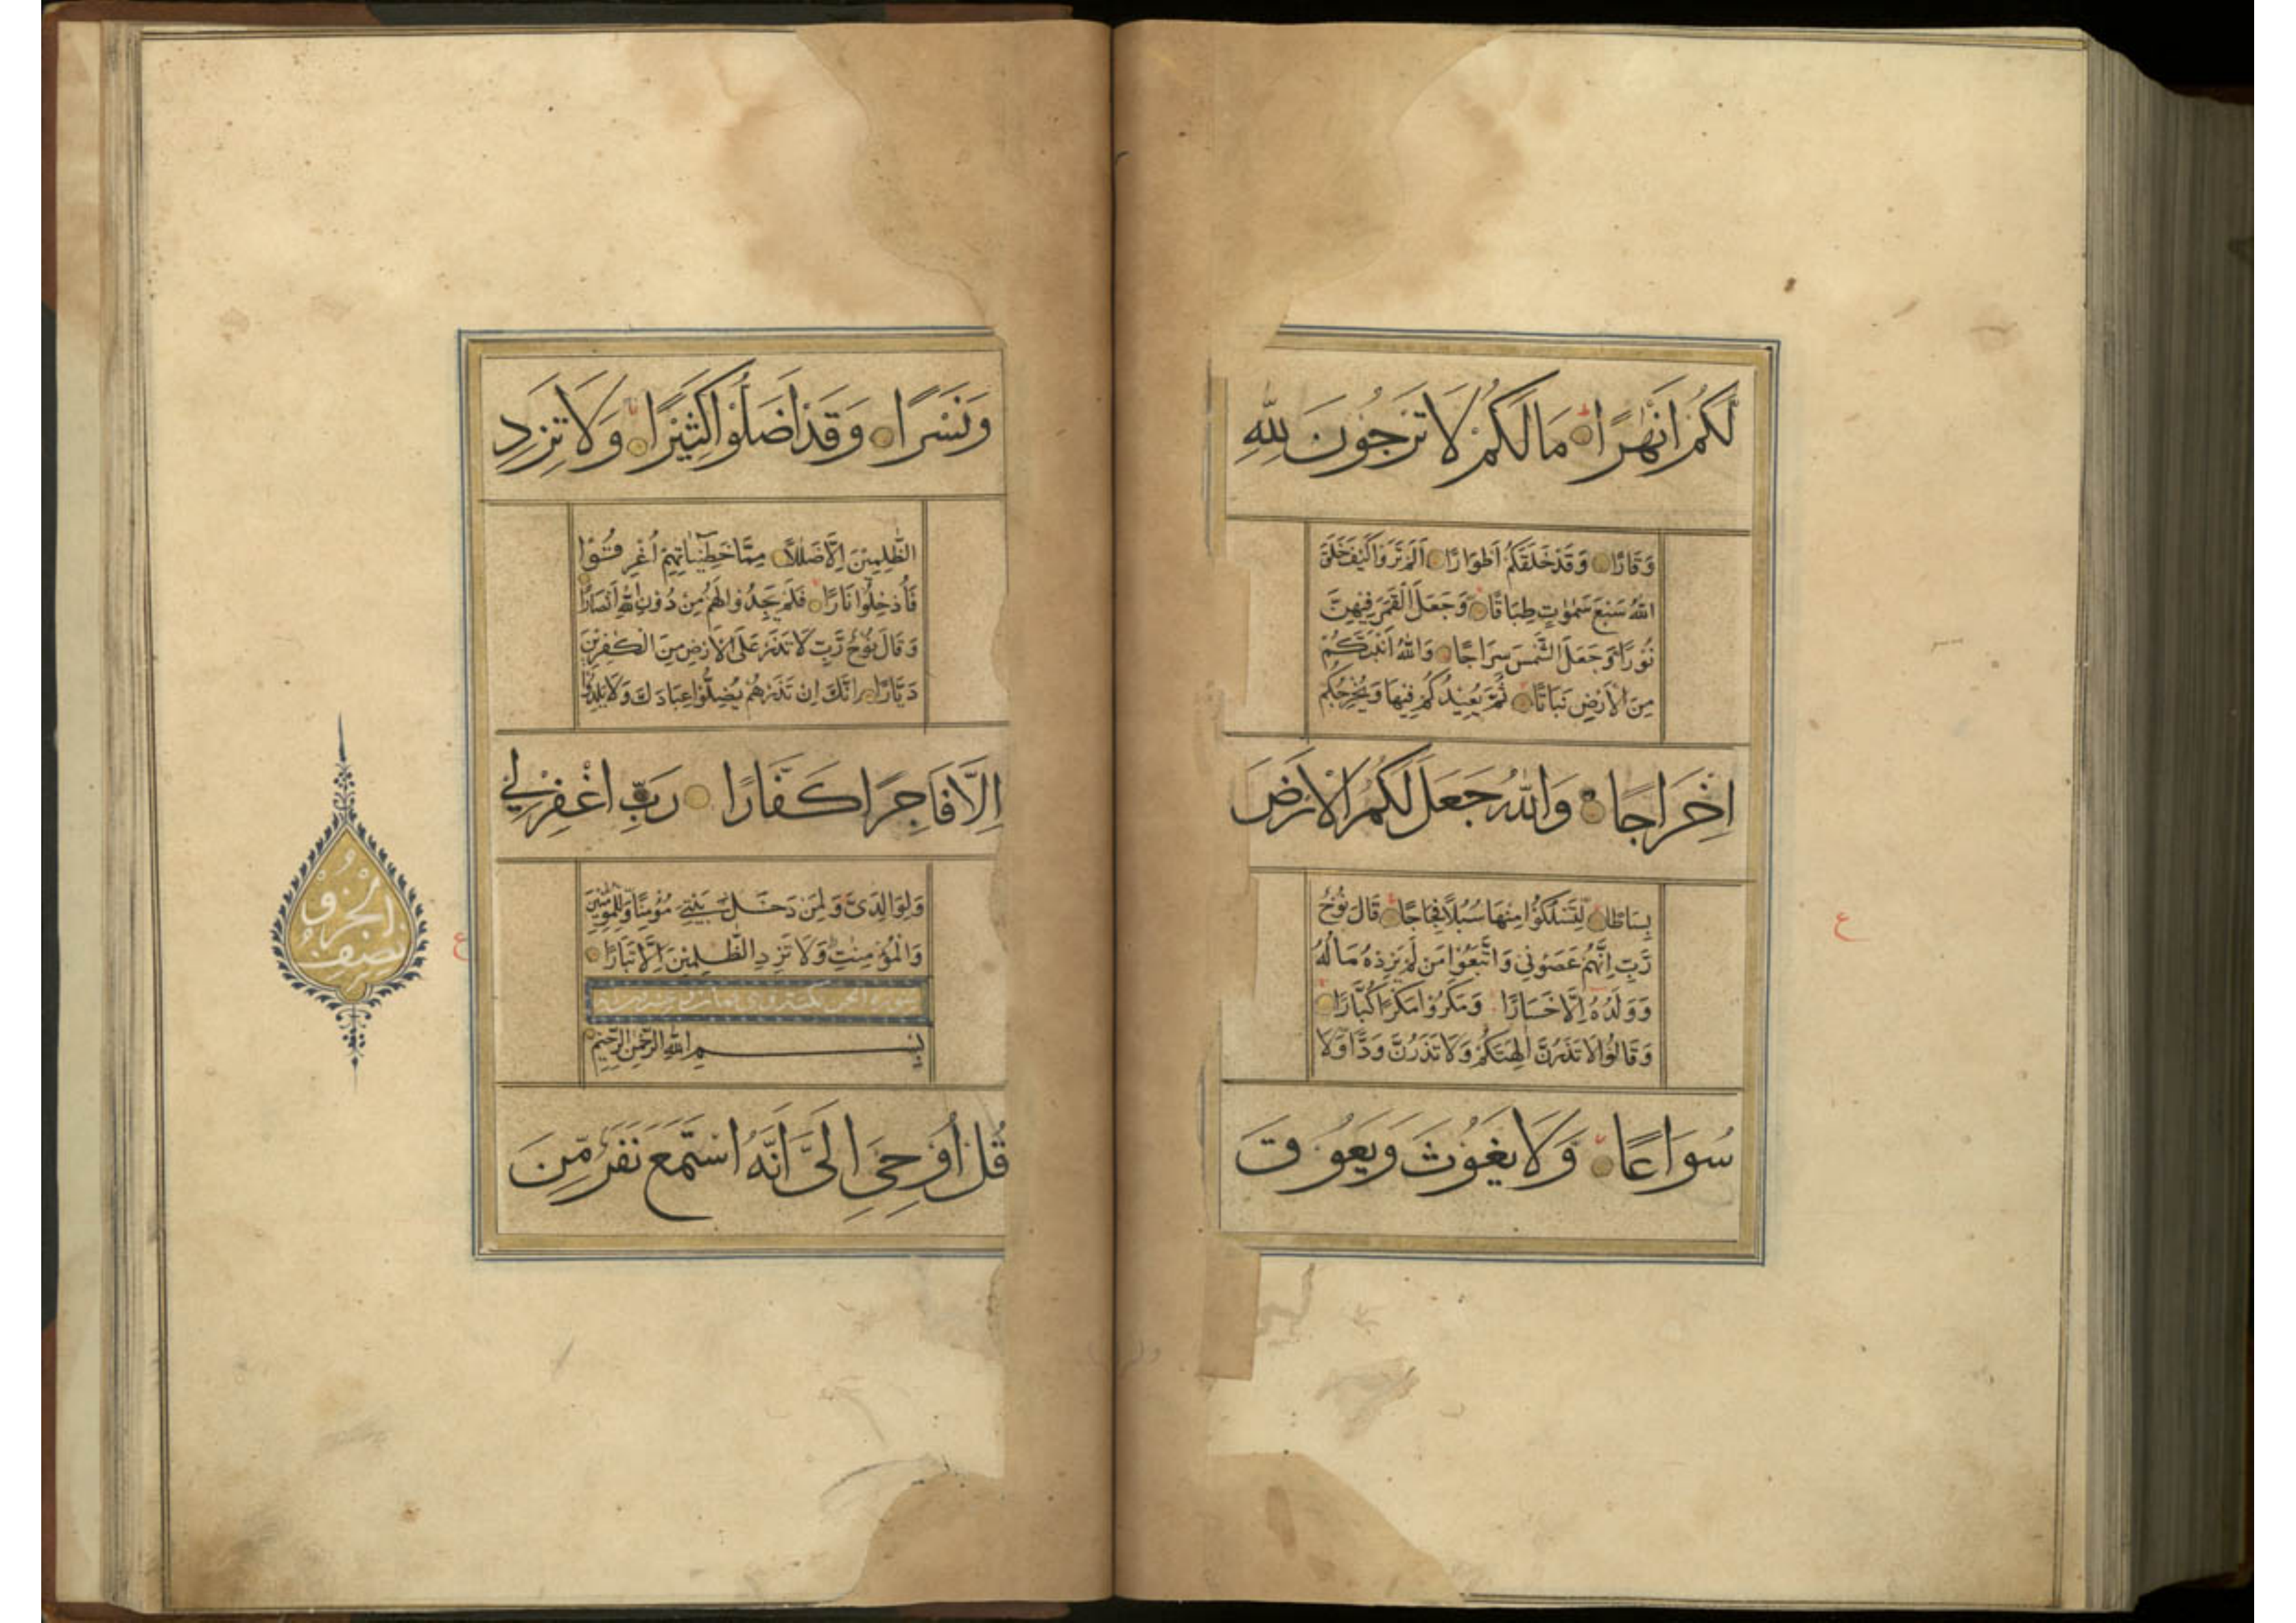 لَّكُمْ اَنْهٰرًا مَا لَكُمْ لَا تَرْجُوْنَ لِلّٰهِ
وَقَارًا وَقَدْ خَلَقَكُمْ اَطْوَارًا اَلَمْ تَرَوْا كَيْفَ خَلَقَ
اللّٰهُ سَبْعَ سَمٰوٰتٍ طِبَاقًا وَجَعَلَ الْقَمَرَ فِيْهِنَّ
نُوْرًا وَجَعَلَ الشَّمْسَ سِرَاجًا وَاللّٰهُ اَنْبَتَكُمْ
مِنَ الْاَرْضِ نَبَاتًا ثُمَّ يُعِيْدُكُمْ فِيْهَا وَيُخْرِجُكُمْ
اِخْرَاجًا وَاللّٰهُ جَعَلَ لَكُمُ الْاَرْضَ
بِسَاطًا لِّتَسْلُكُوْا مِنْهَا سُبُلًا فِجَاجًا قَالَ نُوْحٌ
رَّبِّ اِنَّهُمْ عَصَوْنِي وَاتَّبَعُوْا مَنْ لَمْ يَزِدْهُ مَالُهُ
وَوَلَدُهُ اِلَّا خَسَارًا وَمَكَرُوْا مَكْرًا كُبَّارًا
وَقَالُوْا لَا تَذَرُنَّ اٰلِهَتَكُمْ وَلَا تَذَرُنَّ وَدًّا وَّلَا
سُوَاعًا وَّلَا يَغُوْثَ وَيَعُوْقَ
وَنَسْرًا وَقَدْ اَضَلُّوْا كَثِيْرًا وَلَا تَزِدِ
الظّٰلِمِيْنَ اِلَّا ضَلٰلًا مِمَّا خَطِيْٓـاٰتِهِمْ اُغْرِقُوْا
فَاُدْخِلُوْا نَارًا فَلَمْ يَجِدُوْا لَهُمْ مِنْ دُوْنِ اللّٰهِ اَنْصَارًا
وَقَالَ نُوْحٌ رَّبِّ لَا تَذَرْ عَلَى الْاَرْضِ مِنَ الْكٰفِرِيْنَ
دَيَّارًا اِنَّكَ اِنْ تَذَرْهُمْ يُضِلُّوْا عِبَادَكَ وَلَا يَلِدُوْا
اِلَّا فَاجِرًا كَفَّارًا رَبِّ اغْفِرْلِي
وَلِوَالِدَيَّ وَلِمَنْ دَخَلَ بَيْتِيَ مُؤْمِنًا وَّلِلْمُؤْمِنِيْنَ
وَالْمُؤْمِنٰتِ وَلَا تَزِدِ الظّٰلِمِيْنَ اِلَّا تَبَارًا
سورة الجن
بِسْمِ اللّٰهِ الرَّحْمٰنِ الرَّحِيْمِ
قُلْ اُوْحِيَ اِلَيَّ اَنَّهُ اسْتَمَعَ نَفَرٌ مِّنَ
نصف
الجزو
ع
ع